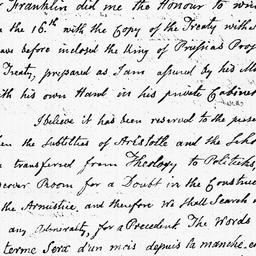 Franklin did me the Honour to
the 16th with the Copy of the Treaty
before inclosed the King of Prussias
Treaty, prepared as I am assured by his
with his own Hand in his private Cabinet
I believe it has been reserved to the
the subtilties of Aristotle and the
transferred from Theology to Politicks,
Room for a Doubt in the
the Armistice, and therefore We shall Search
any Admiralty, for a Precedent The Words
terme Sera d'un mois depuis la manche